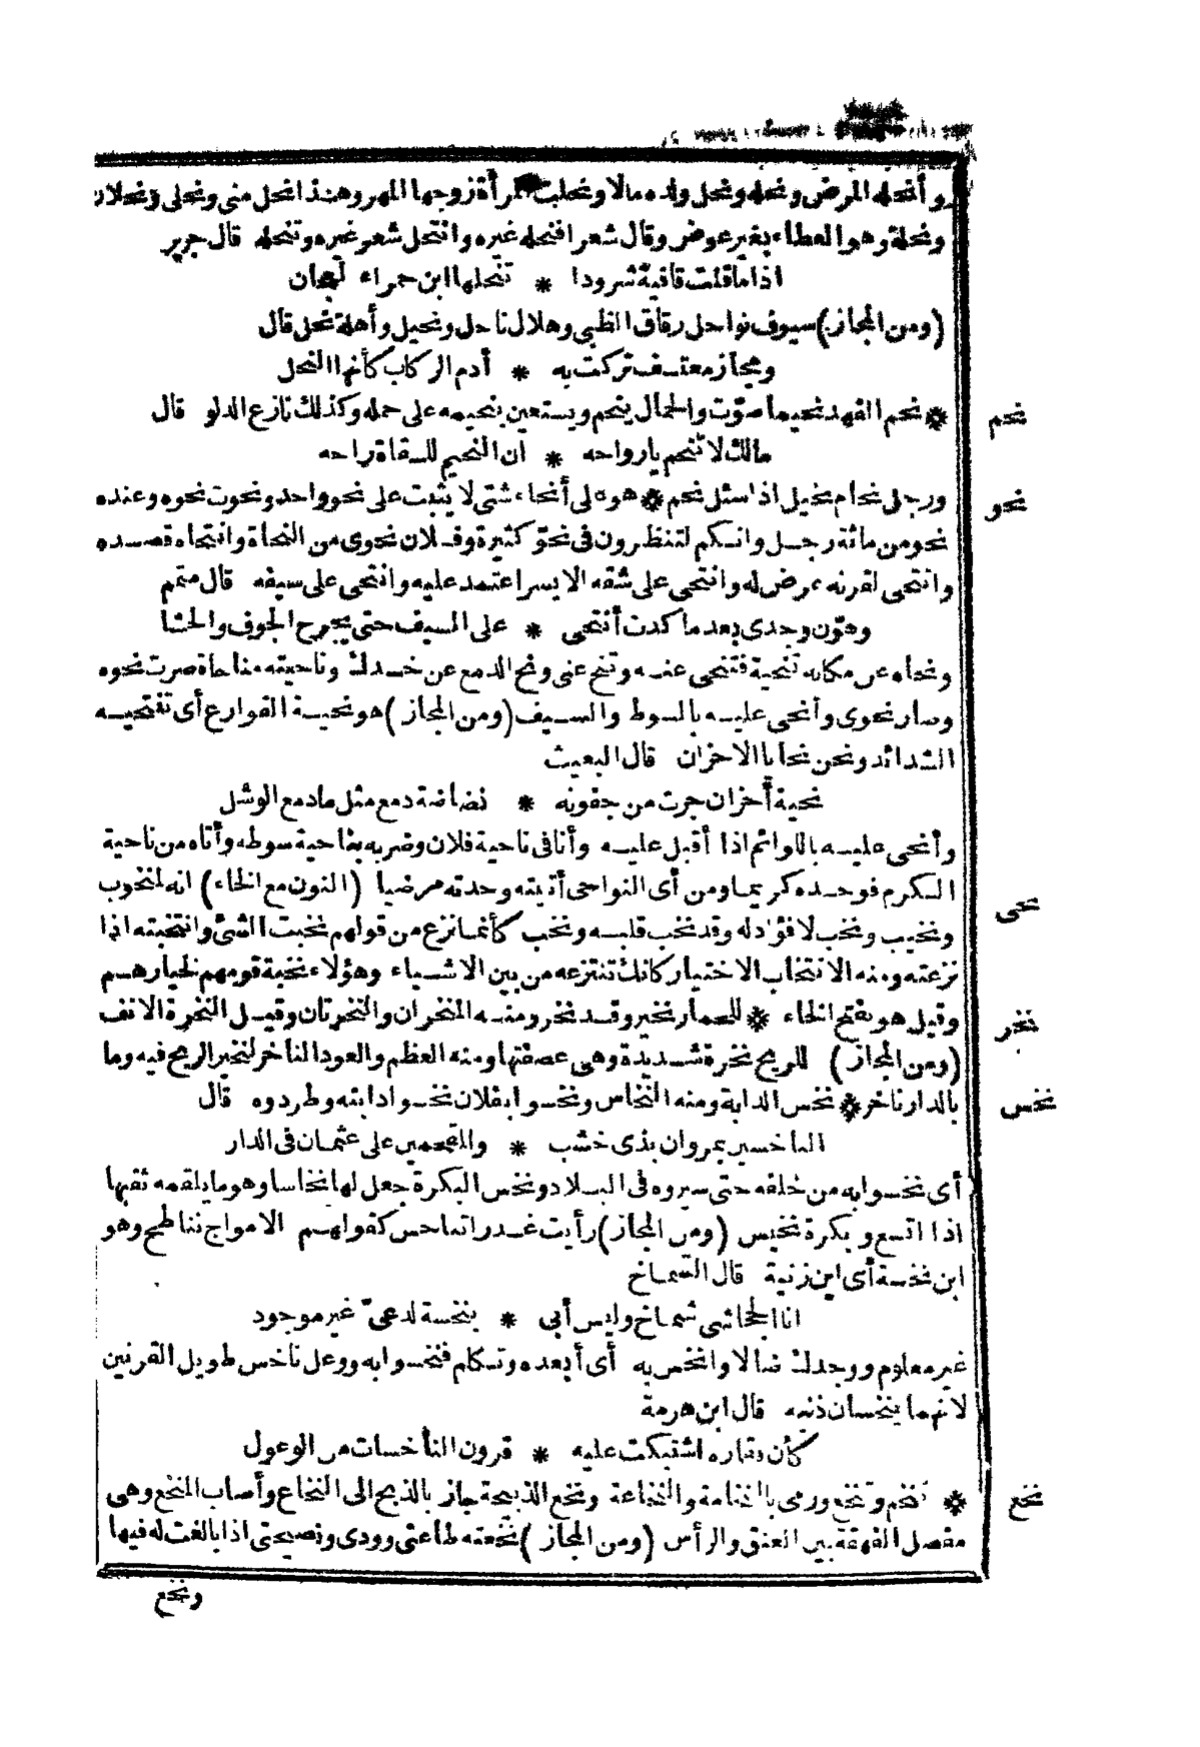 وأنحله المرض ونحله ونحل ولده مالا ونحلت المرأة زوجها المهر وهذا نحل منى ونحلى ونحلان
ونحلة وهو العطاء بغير عوض وقال شعرا فنحله غيره وانتحل شعر غيره وتنحله قال جرير
اذا ما قلت قافية شرودا * تنحلها ابن حمراء العجان
(ومن المجاز) سيوف نواحل رقاق الظبى وهلال ناحل ونحيل وأهلة نحل قال
ومجاز معتسف تركت به * أدم الركاب كأنها النحل
نحم
* نحم الفهد نحيما صوّت والحمال ينحم ويستعين بنحيمه على حمله وكذلك نازع الدلو قال
مالك لا تنحم يا رواحه * ان النحيم للسقاة راحه
نحو
ورجل نحام بخيل اذا سئل نحم * هو على أنحاء شتى لا يثبت على نحو واحد ونحوت نحوه وعنده
نحو من مائة رجل وانكم لتنظرون فى نحوّ كثيرة وفلان نحوى من النحاة وانتحاه قصده
وانتحى لقرنه عرض له وانتحى على شقه الايسر اعتمد عليه وانتحى على سيفه قال متمم
وهوّن وجدى بعد ما كدت أنتحى * على السيف حتى يجرح الجوف والحشا
ونحاه عن مكانه تنحية فتنحى عنه وتنح عنى ونح الدمع عن خدك وناحيته مناحاة صرت نحوه
وصار نحوى وأنحى عليه بالسوط والسيف (ومن المجاز) هو نحية القوارع أى تنتحيه
الشدائد ونحن نحايا الاحزان قال البعيث
نحية أحزان جرت من جفونه * نضاضة دمع مثل ما دمع الوشل
وأنحى عليه باللوائم اذا أقبل عليه وأنا فى ناحية فلان وضربه بناحية سوطه وأتاه من ناحية
نحى
الكرم فوجده كريما ومن أى النواحى أتيته وجدته مرضيا (النون مع الخاء) انه لمنخوب
ونخيب ونخب لا فؤاد له وقد نخب قلبه ونخب كأنما نزع من قولهم نخبت الشئ وانتخبته اذا
نزعته ومنه الانتخاب الاختيار كانك تنتزعه من بين الاشياء وهؤلاء نخبة قومهم لخيارهم
نخر
وقيل هو بفتح الخاء * للحمار نخير وقد نخر ومنه المنخران والنخرتان وقيل النخرة الانف
(ومن المجاز) للريح نخرة شديدة وهى عصفتها ومنه العظم والعود الناخر لنخير الريح فيه وما
نخس
بالدار ناخر * نخس الدابة ومنه النخاس ونخسوا بفلان نخسوا دابته وطردوه قال
الناخسين بمروان بذى خشب * والمقحمين على عثمان فى الدار
أى نخسوا به من خلفه حتى سيروه فى البلاد ونخس البكرة جعل لها نخاسا وهو ما يلقمه ثقبها
اذا اتسع وبكرة نخيس (ومن المجاز) رأيت غدرا تناخس كقولهم الامواج تناطح وهو
ابن نخسة أى ابن زنية قال الشماخ
انا الجحاشى شماخ وليس أبى * بنخسة لدعىّ غير موجود
غير معلوم ووجدك ضالا وانخس به أى أبعده وتكلم فنخسوا به ووعل ناخس طويل القرنين
لانهما ينخسان ذنبه قال ابن هرمة
كأن فقاره اشتبكت عليه * قرون الناخسات من الوعول
نخع
* تنخم وتنخع ورمى بالنخامة والنخاعة ونخع الذبيحة جاز بالذبح الى النخاع وأصاب المنخع وهى
مفصل الفهقة بين العنق والرأس (ومن المجاز) نخعته طاعتى وودى ونصيحتى اذا بالغت له فيها
ونخع